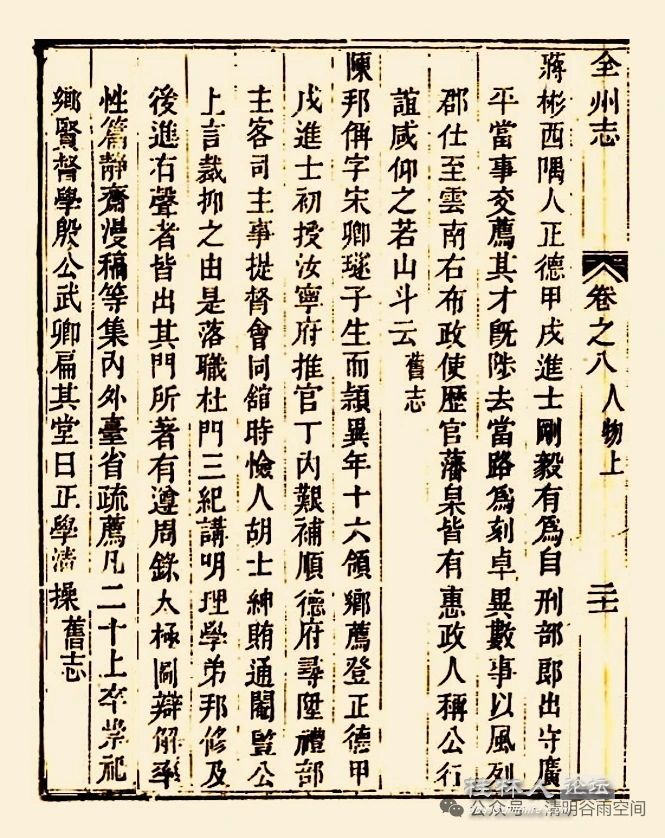 全州志
卷之八 人物上 二十
蔣彬西隅人正德甲戌進士剛毅有爲自刑部郎出守廣
平當事交薦其才旣陟去當路爲刻卓異數事以風列
郡仕至雲南右布政使歷官藩臬皆有惠政人稱公行
誼咸仰之若山斗云舊志
陳邦偁字宋卿璲子生而頴異年十六領鄉薦登正德甲
戌進士初授汝寧府推官丁內艱補順德府尋陞禮部
主客司主事提督會同舘時憸人胡士紳賄通閹監公
上言裁抑之由是落職杜門三紀講明理學弟邦修及
後進右聲者皆出其門所著有遵周錄太極圖辯解率
性篇靜齋漫稿等集內外臺省疏薦凡二十上卒崇祀
鄉賢督學殷公武卿扁其堂曰正學淸操舊志
桂林人论坛
公众号 · 清明谷雨空间